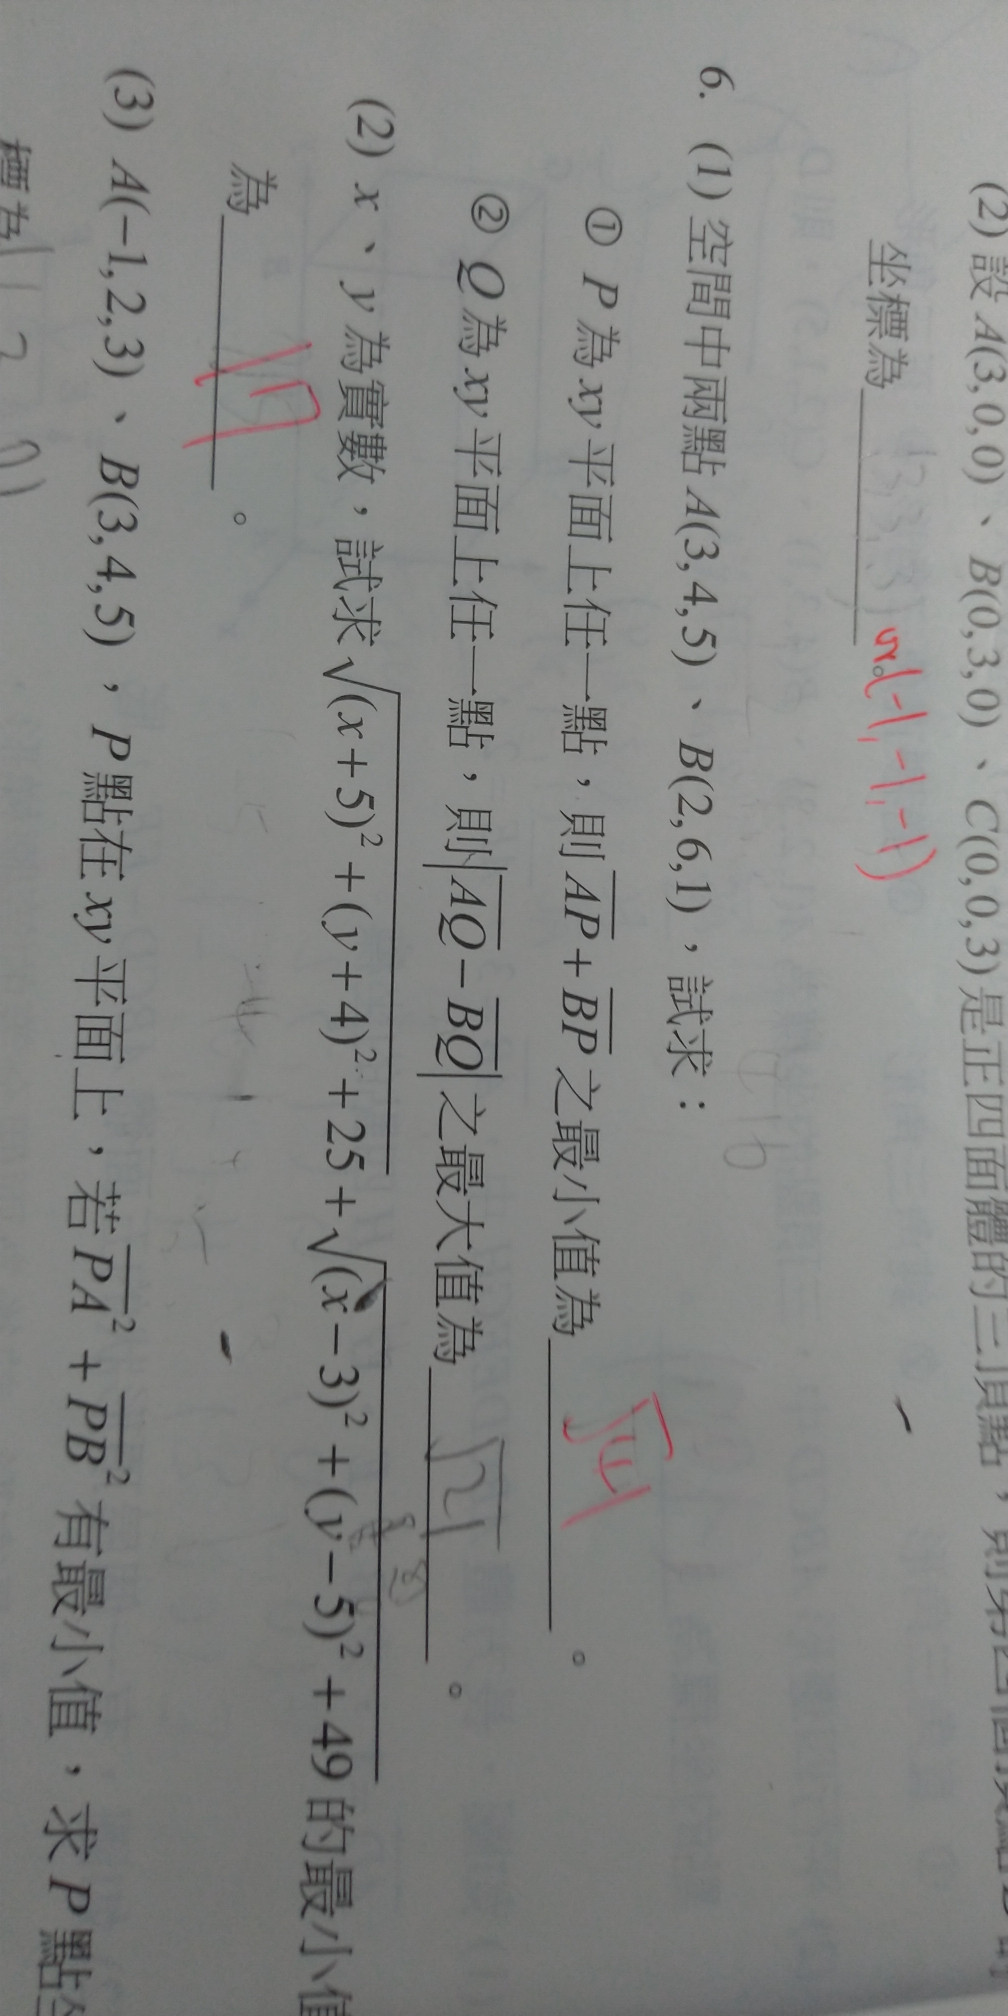 (2) 設 A(3,0,0)、B(0,3,0)、C(0,0,3) 是正四面體的三頂點，則第四個頂點
坐標為 (3,3,3) or (-1,-1,-1) 。
6. (1) 空間中兩點 A(3,4,5)、B(2,6,1)，試求：
① P 為 xy 平面上任一點，則 AP + BP 之最小值為 √41 。
② Q 為 xy 平面上任一點，則 |AQ − BQ| 之最大值為 √21 。
(2) x、y 為實數，試求 √((x+5)² + (y+4)² + 25) + √((x−3)² + (y−5)² + 49) 的最小值
為 17 。
(3) A(−1,2,3)、B(3,4,5)，P 點在 xy 平面上，若 PA² + PB² 有最小值，求 P 點
標為